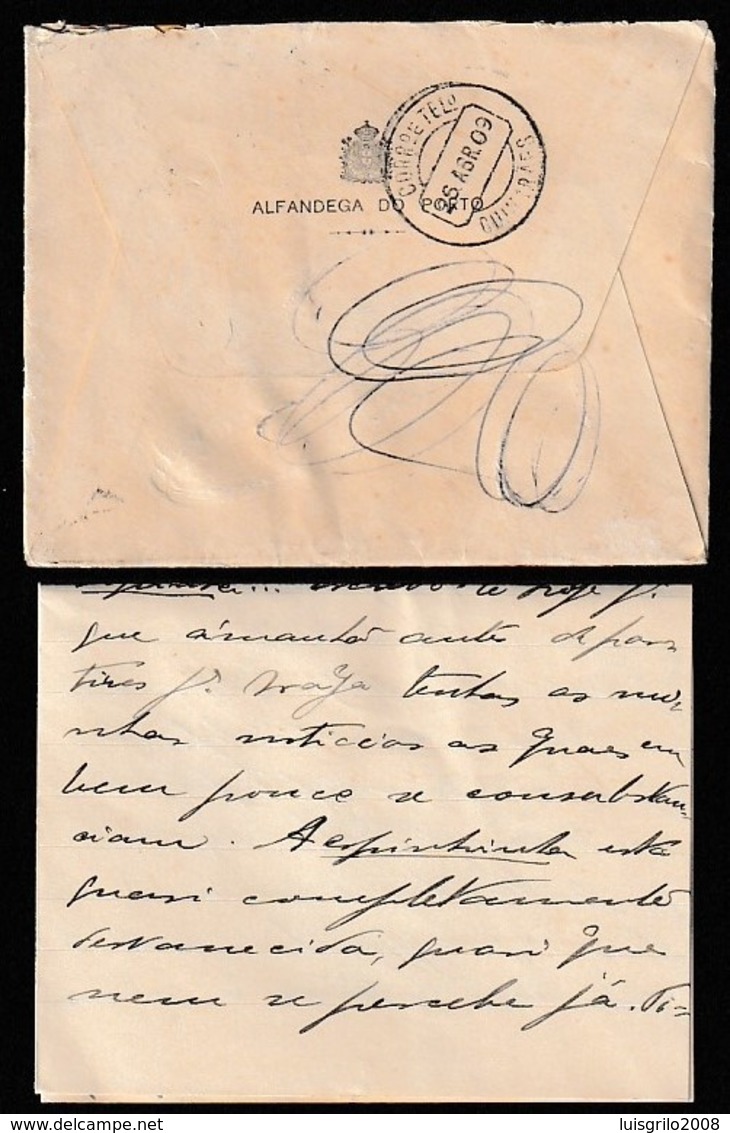 ALFANDEGA DO PORTO
CORRO E TELO
26 ABR. 09
GUIMARAES
escrevo-te hoje p.ª
que ámanhã antes de par-
tires p.ª tenhas as mi-
nhas noticias as quaes em
bem pouco se consubstan-
ciam. A espinhinha está
quasi completamente
desvanecida, quasi que
nem se percebe já. Ti-
luisgrilo2008